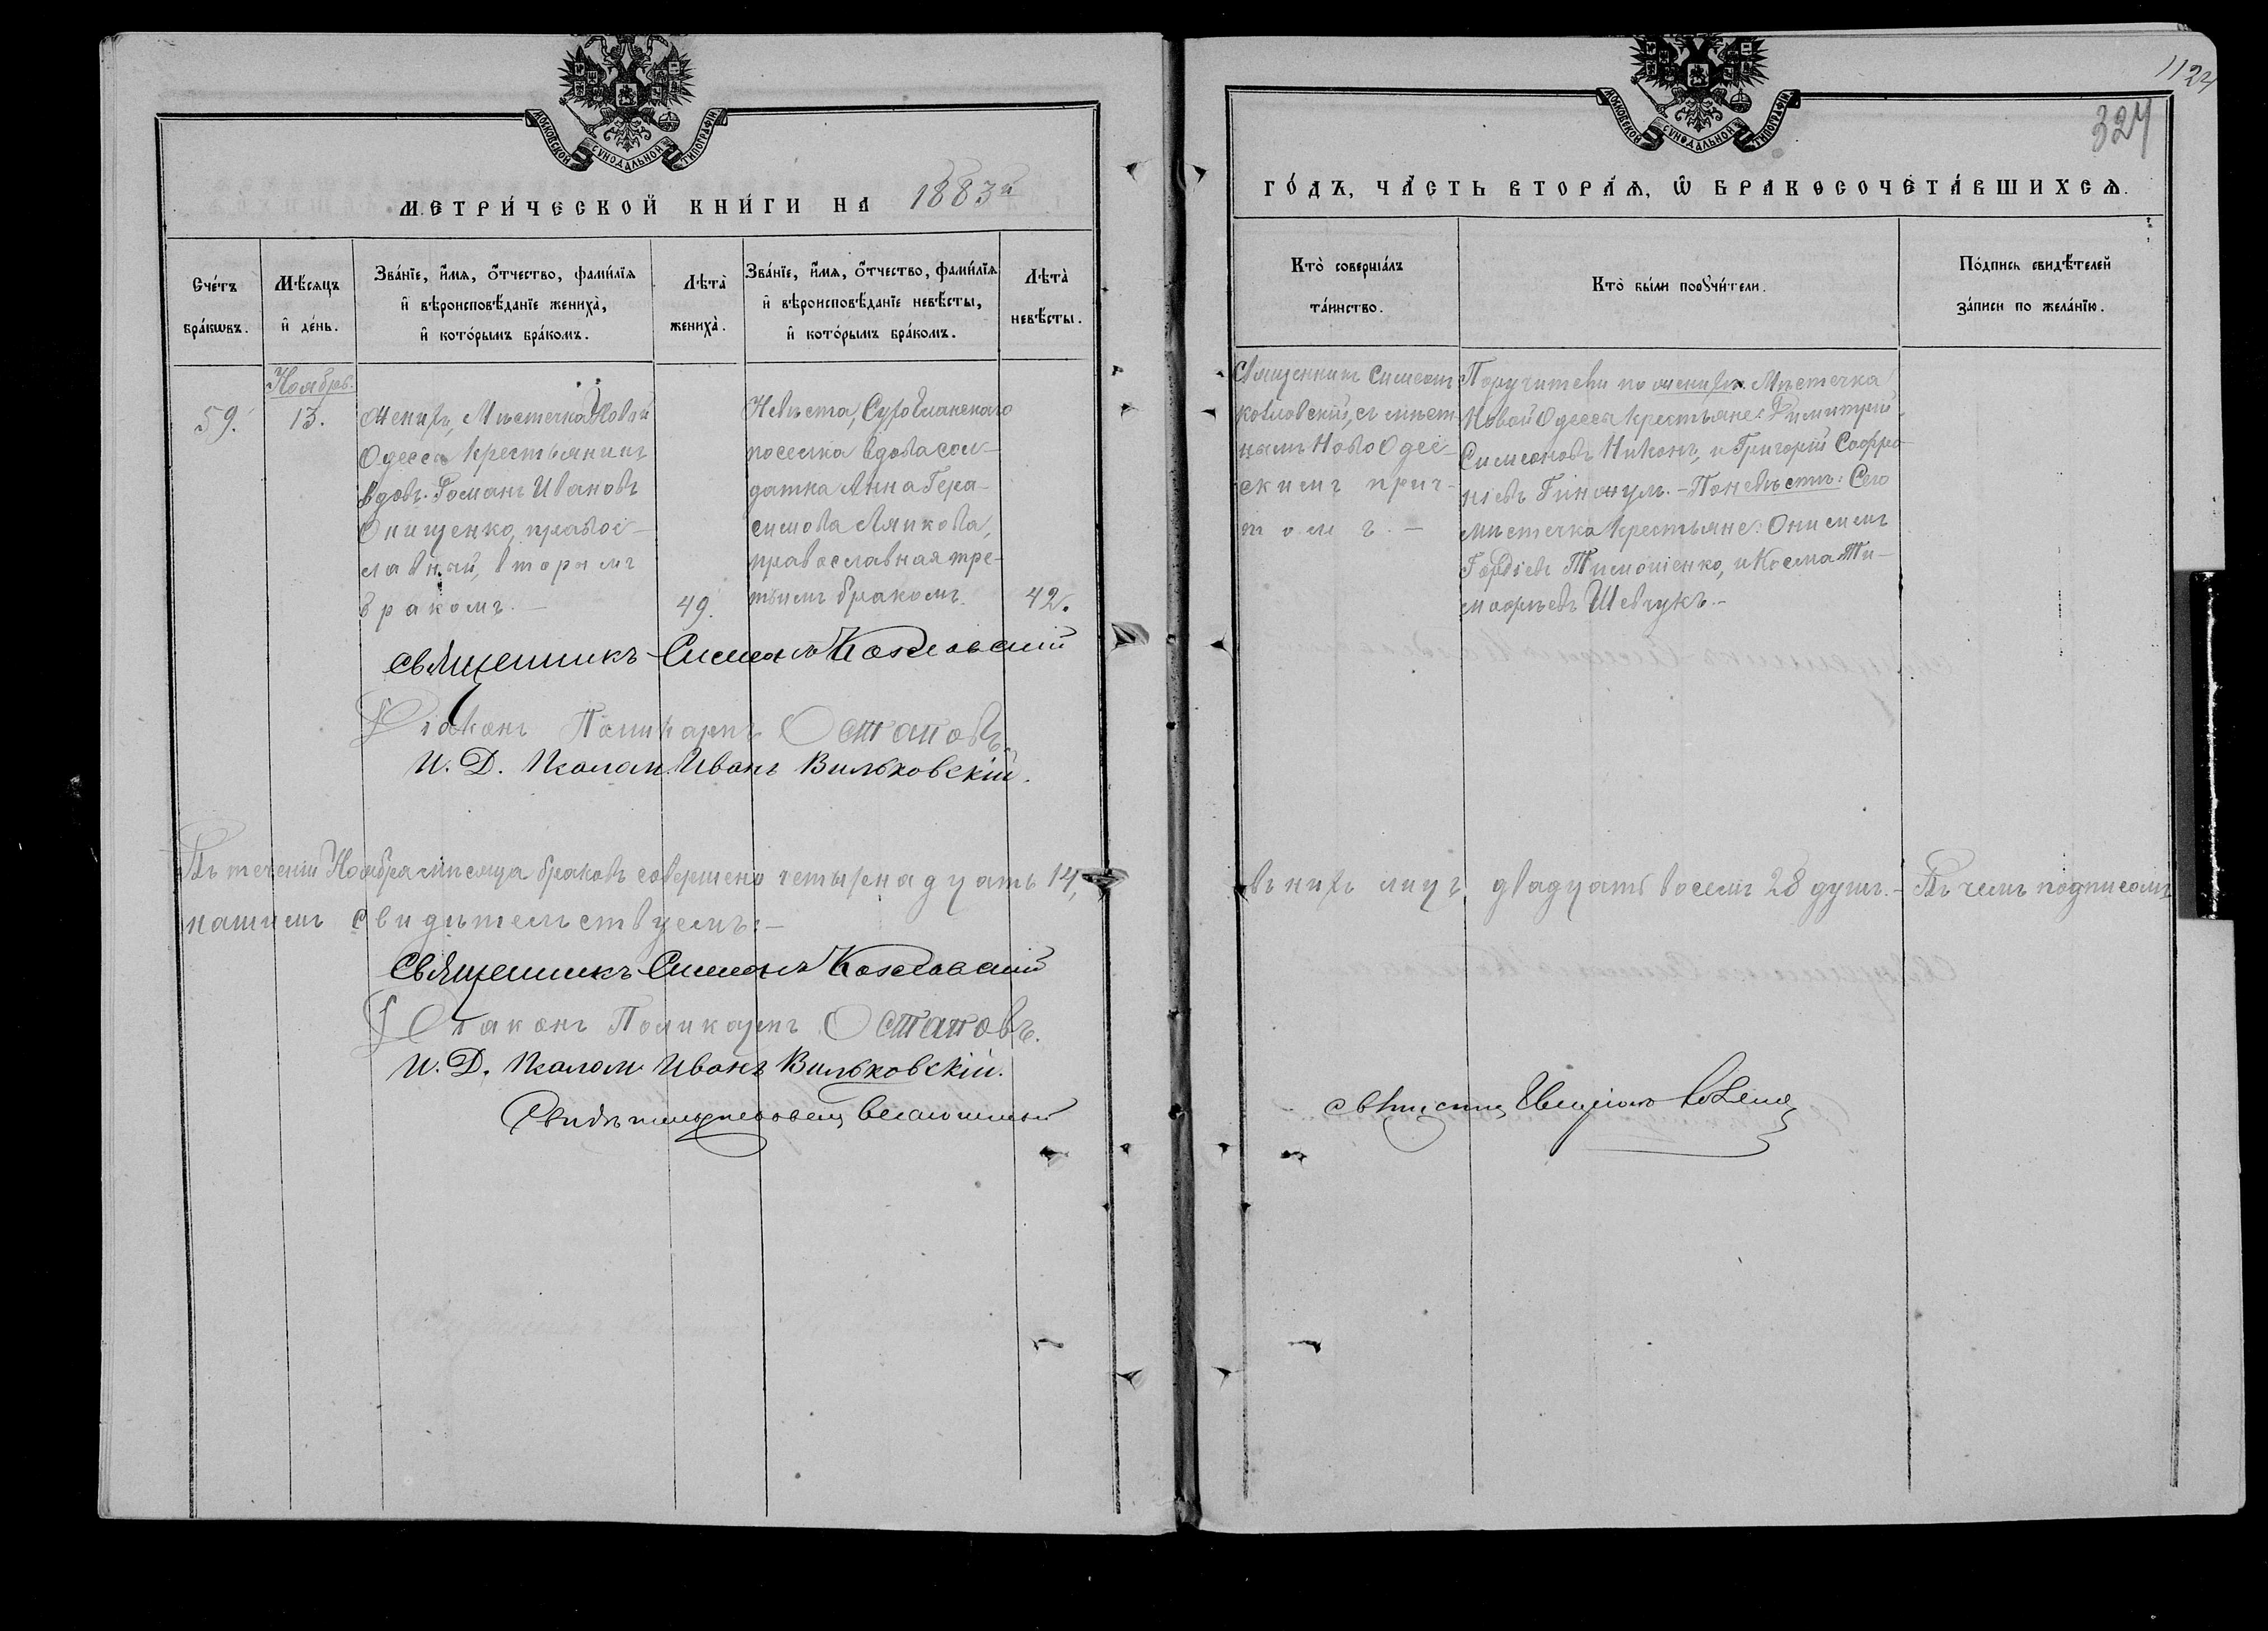 МОСКОВСКОЙ СѴНОДАЛЬНОЙ ТИПОГРАФІИ
МЕТРИ́ЧЕСКОЙ КНИ́ГИ НА 1883й
Сче́тъ бра́кѡвъ.
Мѣ́сяцъ и҆ де́нь.
Зва́нїе, и҆́мѧ, ѻ҆́тчество, фами́лїѧ
и҆ вѣроисповѣ́данїе жениха̀,
и҆ кото́рымъ бра́комъ.
Лѣта̀
жениха̀.
Зва́нїе, и҆́мѧ, ѻ҆́тчество, фами́лїѧ
и҆ вѣроисповѣ́данїе невѣ́сты,
и҆ кото́рымъ бра́комъ.
Лѣта̀
невѣ́сты.
59.
Ноябрь.
13.
Женихъ, Мѣстечка Новой
Одесса крестьянинъ
вдовъ. Романъ Ивановъ
Онищенко, правос-
лавный, вторымъ
бракомъ. —
49.
Невѣста,
поселка вдова сол-
датка Анна Гера-
симова Ляпкова,
православная тре-
тьимъ бракомъ.
42.
Священникъ Симеонъ Козловскій
Діаконъ Поликарпъ Остаповъ.
И. Д. Псалом. Иванъ Вильковскій.
Въ теченіи Ноября мѣсяца браковъ совершено четырнадцать 14,
нашимъ свидѣтельствуемъ: —
Священникъ Симеонъ Козловскій
Діаконъ Поликарпъ Остаповъ.
И. Д. Псалом. Иванъ Вильковскій.
1124
324
МОСКОВСКОЙ СѴНОДАЛЬНОЙ ТИПОГРАФІИ
ГО́ДЪ, ЧА́СТЬ ВТОРА́Ѧ, Ѡ҆ БРАКОСОЧЕТА́ВШИХСѦ.
Кто̀ соверша́лъ
та́инство.
Кто̀ бы́ли порꙋчи́тели.
По́дпись свидѣ́телей
за́писи по жела́нїю.
Священникъ Симеонъ
Козловскій, съ мѣст-
нымъ Новоодес-
скимъ прич-
томъ. —
Поручители по женихѣ. Мѣстечка
Новой Одесса крестьяне: Димитрій
Симеоновъ Никонъ, и Григорій Софро-
ніевъ — По невѣстѣ: Сего
мѣстечка крестьяне: Онисимъ
Гордіевъ Тимошенко, и Косма Ти-
моѳеевъ Шевчукъ. —
въ нихъ лицъ, двадцать восемь 28 душъ. — Въ чемъ подписомъ